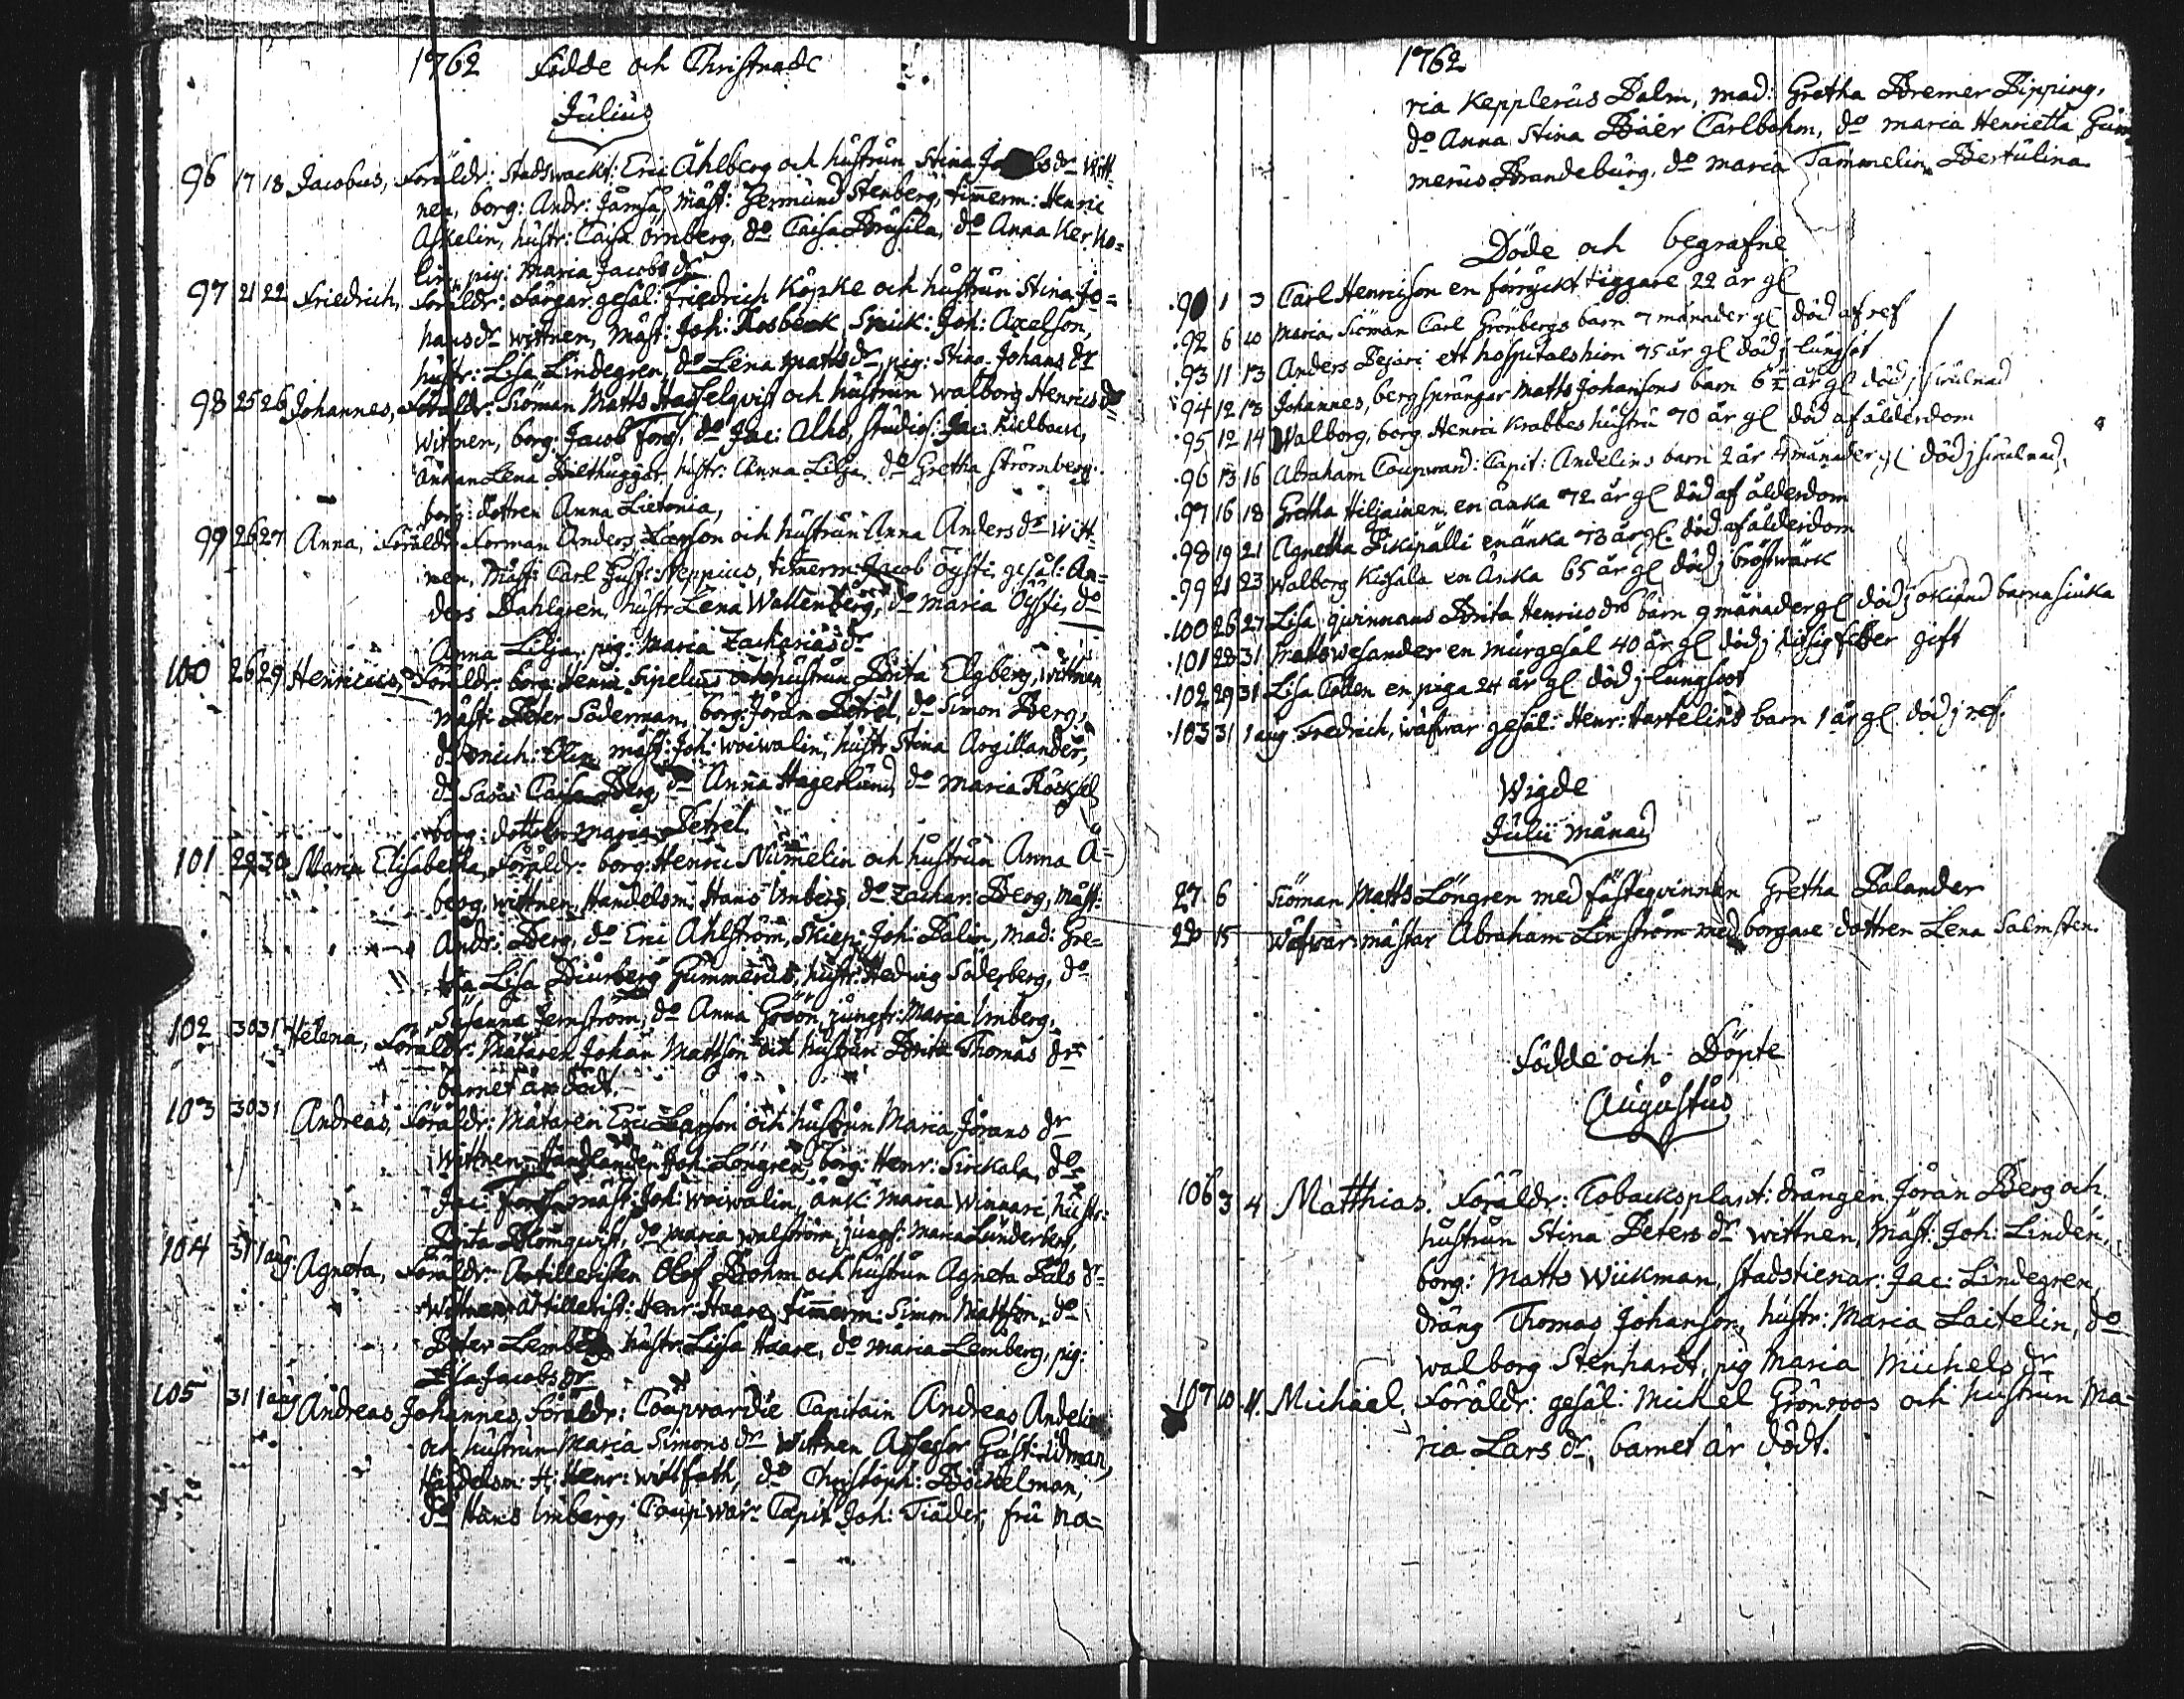 1762 Födde och Christnade
Julius
96 17 18 Jacobus, Föräldr: Stadswackt: Eric Åhlberg och hustrun Stina dr Witt-
nen, borg: Andr: Jämsä, mäst: Germund Stenberg, tim̄erm: Henric
Askelin, hustr: Caisa Örnberg, do Caisa Brusila, do Anna Kerko-
lin, pig: Maria Jacobs dr
97 21 22 Friedrich, Föräldr: Färgar gesäl: Friedrich Köpke och hustrun Stina Jo-
hans dr wittnen, Mäst: Joh: Rosbeck, Snick: Joh: Axelson,
hustr: Lisa Lindegren, do Lena Matts dr, pig: Stina Johans dr
98 25 26 Johannes, Föräldr: Siöman Matts Hasselqvist och hustrun Walborg Henrics dr
Wittnen, borg: Jacob Forss, do Jac: Alho, studios: Jac: Kielback,
änkan Lena Bilthuggar, hustr: Anna Lilja, do Gretha Strömberg
borg: dottren Anna Lietonia,
99 26 27 Anna, Föräldr: Forman Anders Larson och hustrun Anna Anders dr Witt-
nen, Mäst: Carl Gust: Neppius, tim̄erm: Jacob Öysti, gesäl: An-
ders Dahlgren, hustr Lena Wallenberg, do Maria Öysti, do
Anna Lilja, pig: Maria Zacharias dr
100 26 29 Henricus, Föräldr: borg: Henric Sipelius och hustrun Brita Elgberg, wittnen
Mäst: Peter Söderman, borg: Jöran Petrel, do Simon Berg,
do Mich: Elin, mäst: Joh: Woiwalin, hustr Stina Argillander,
do Caisa Berg, do Anna Hagerlund, do Maria Rösksel
borg: dottren Maria Petrel
101 29 30 Maria Elisabetha, Föräldr: borg: Henric Num̄elin och hustrun Anna Å-
berg, wittnen, Handelsm: Hans Imberg, do Zachar: Berg, Mäst:
Andr: Berg, do Eric Åhlström, Skiep: Joh: Palin, Mad: Gre-
ta Lisa Diurberg Gummerus, hustr: Hedwig Söderberg, do
Susanna Jernström, do Anna Gröön, jungfr: Maria Imberg,
102 30 31 Helena, Föräldr: Mätaren Johan Mattson och hustrun Brita Thomas dr
barnet är dödt.
103 30 31 Andreas, Föräldr: Mätaren Eric Larson och hustrun Maria Jörans dr
wittnen, Handlanden Joh: Löngren, borg: Henr: Sirckala, do
Jac: Forss, mäst: Joh: Woiwalin, änk: Maria Winnari, hustr:
Brita Blomqwist, do Maria Walström, jungf: Maria Lunderberg,
104 31 1 aug. Agneta, Föräldr: Artilleristen Olof Bohm och hustrun Agneta Påls dr
Wittnen, artillerist: Henr: Haare, tim̄erm: Simon Mattson, do
Peter Lemberg, hustr: Lisa Haare, do Maria Lemberg, pig:
Lisa Jacobs dr
105 31 1 aug Andreas Johannes, Föräldr: Coupvardie Capitain Andreas Andelin
och hustrun Maria Simons dr Wittnen Assessor Gust: Idman,
Handelsm: H: Henr: Wittfoth, do Christoph: Böckelman,
do Hans Imberg, Coupwar: Capit: Joh: Tiäder, fru Ma-
1762
ria Kepplerus Palm, mad: Gretha Bremer Bipping,
do Anna Stina Baer Carlbohm, do Maria Henrietta Gum
merus Brandeburg, do Maria Tammelin Bertulina
Döde och begrafne
1 3 Carl Henricson en förryckt tiggare 22 år gl
92 6 10 Maria, Siöman Carl Grönbergs barn 7 månader gl död af ref
93 11 13 Anders Pejari ett hospitalshion 75 år gl död j lungsot
94 12 13 Johannes, bergsprängar Matts Johansons barn 6½ år gl död j swulnad
95 12 14 Walborg, borg: Henric Krabbes hustru 70 år gl död af ålderdom
96 13 16 Abraham Coupward: Capit: Andelins barn 2 år 4 månader gl död j swulnad,
97 16 18 Gretha Hiljainen en änka 72 år gl död af ålderdom
98 19 21 Agnetha Pikipälli en änka 73 år gl. död af ålderdom
99 21 23 Walborg Kissala en änka 65 år gl död j bröstwärk
100 26 27 Lisa, qwinnans Brita Henrics drs barn 9 månader gl död j okiänd barnasiuka
101 28 31 Matts Wesander en murgesäl 40 år gl död j hitsig feber gift
102 29 31 Lisa Tollen en piga 24 år gl död j lungsoot
103 31 1 aug Fredrich, wäfwar gesäl: Henr: Hartelius barn 1 år gl. död j ref.
Wigde
Julii månad
27 6 Siöman Matts Löngren med fästeqvinnan Gretha Palander
15 Wäfwar mästar Abraham Linström med borgare dottren Lena Salmsten.
Födde och Döpte
Augustus
106 3 4 Matthias. Föräldr: Tobacksplant: drängen Jöran Berg och
hustrun Stina Peters dr wittnen, mäst: Joh: Linden,
borg: Matts Wiikman, stadstienar: Jac: Lindegren,
dräng Thomas Johanson, hustr: Maria Laitelin, do
Walborg Stenhardt, pig Maria Michels dr
107 10 11. Michael, Föräldr: gesäl: Michel Grönroos och hustrun Ma-
ria Lars dr, barnet är dödt.